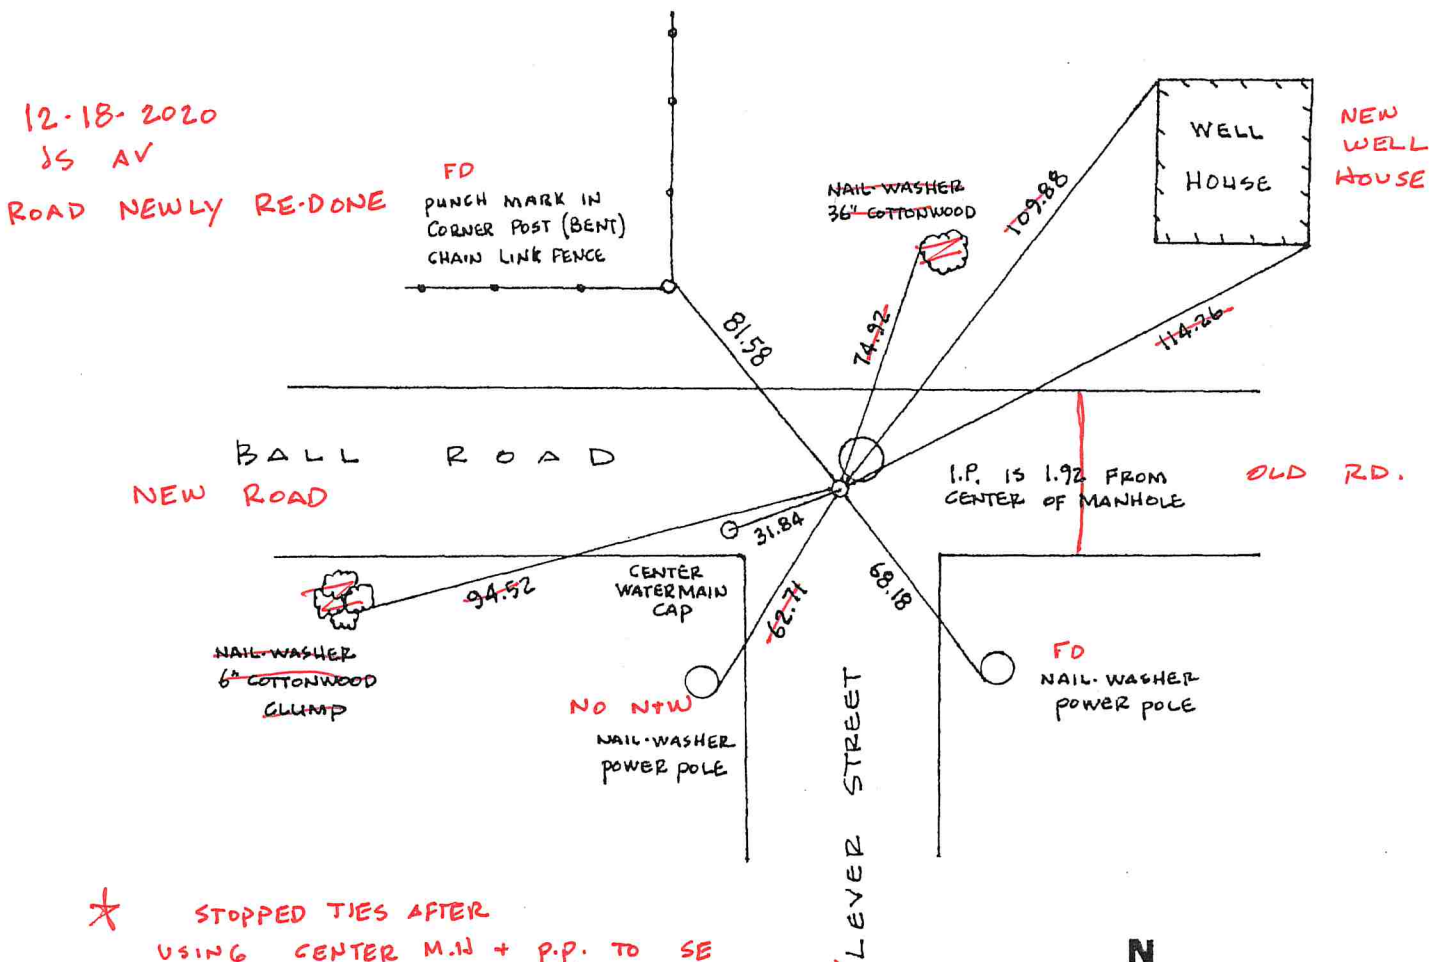 12-18-2020
JS AV
ROAD NEWLY RE-DONE
FD
PUNCH MARK IN
CORNER POST (BENT)
CHAIN LINK FENCE
NAIL-WASHER
36" COTTONWOOD
WELL
HOUSE
NEW
WELL
HOUSE
109.88
81.58
74.92
114.26
BALL ROAD
NEW ROAD
I.P. IS 1.92 FROM
CENTER OF MANHOLE
OLD RD.
31.84
94.52
CENTER
WATERMAIN
CAP
62.71
68.18
NAIL-WASHER
6" COTTONWOOD
CLUMP
NO N+W
NAIL-WASHER
POWER POLE
FD
NAIL-WASHER
POWER POLE
LEVER STREET
* STOPPED TIES AFTER
USING CENTER M.H + P.P. TO SE
N